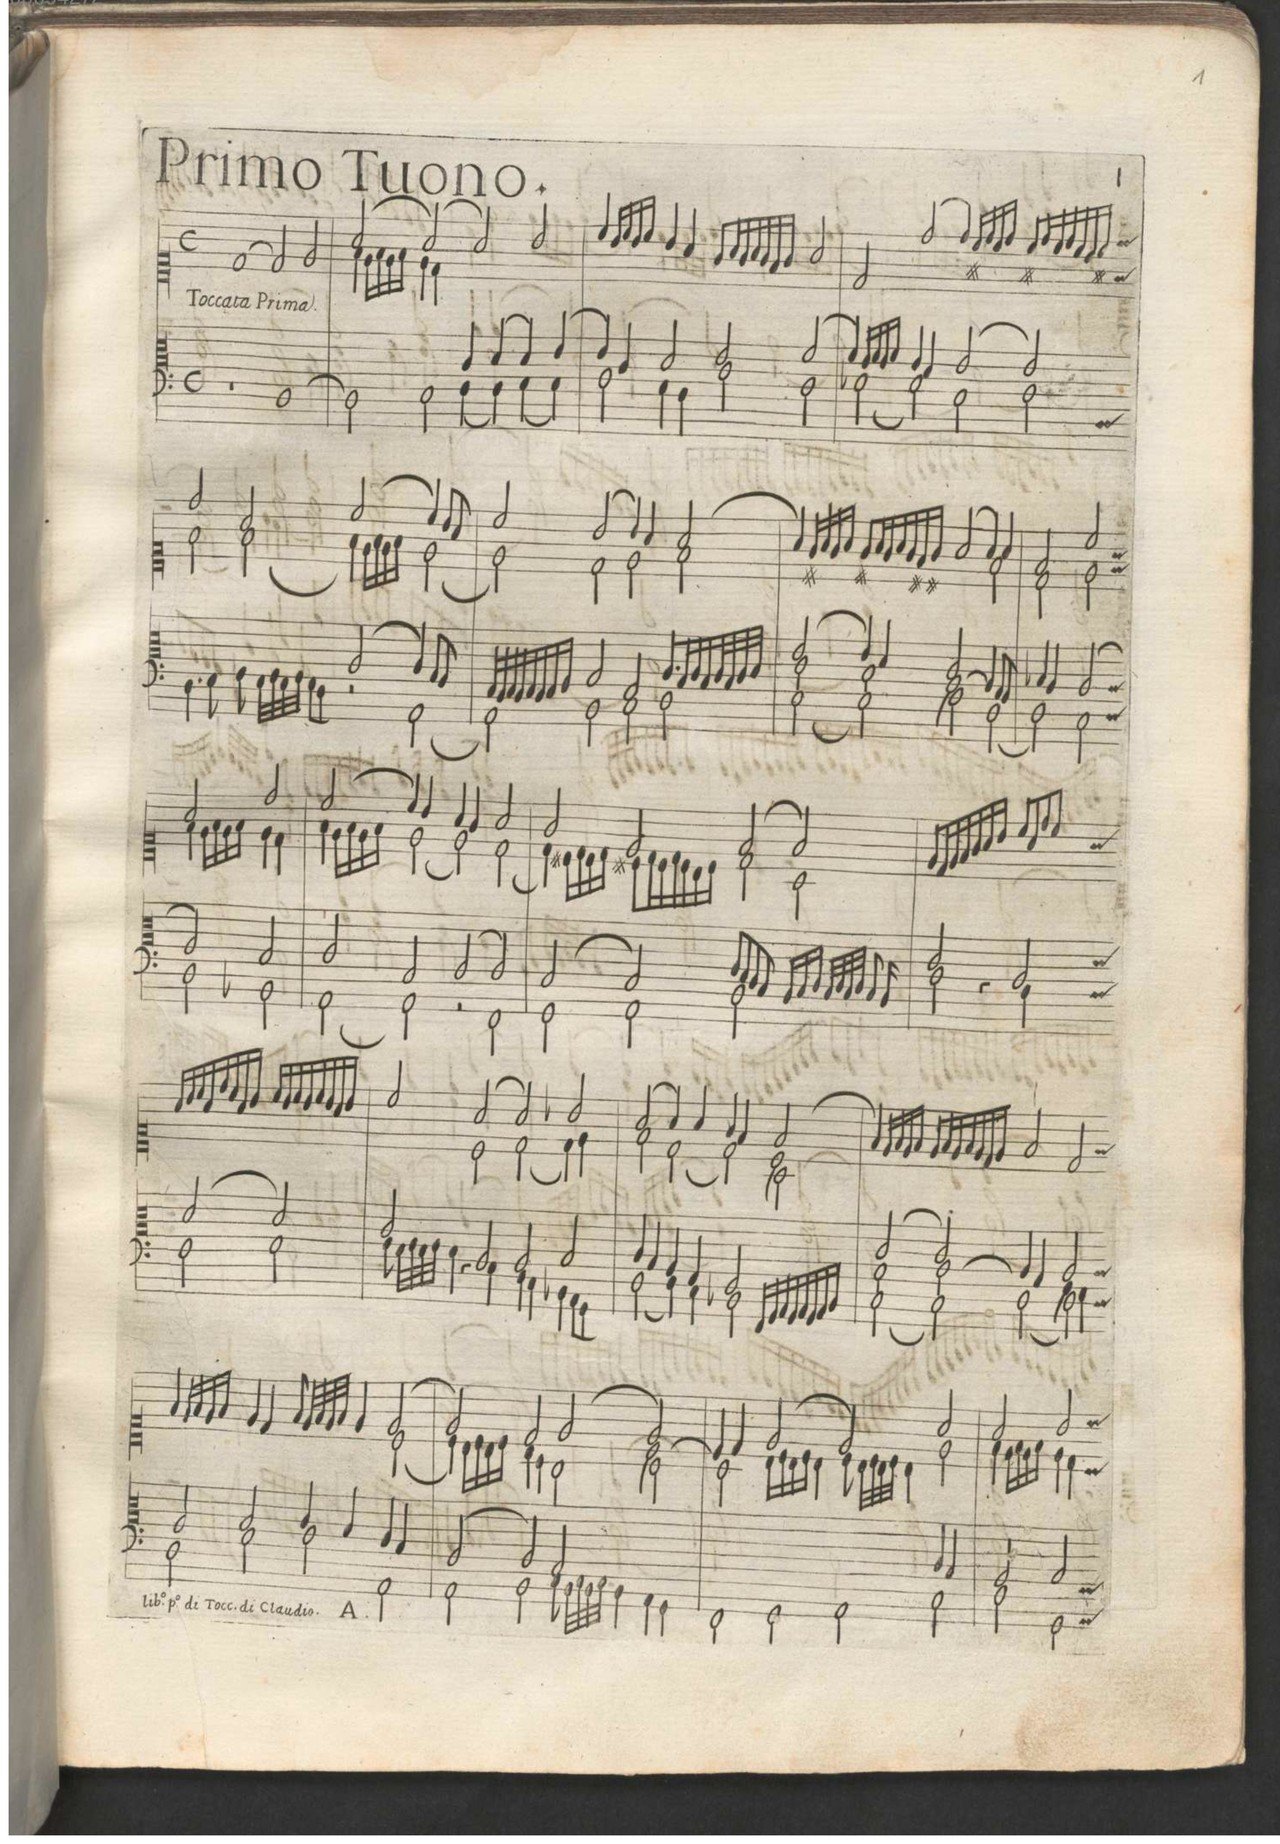 1
Primo Tuono.
1
Toccata Prima.
lib.º p.º di Tocc. di Claudio. A.